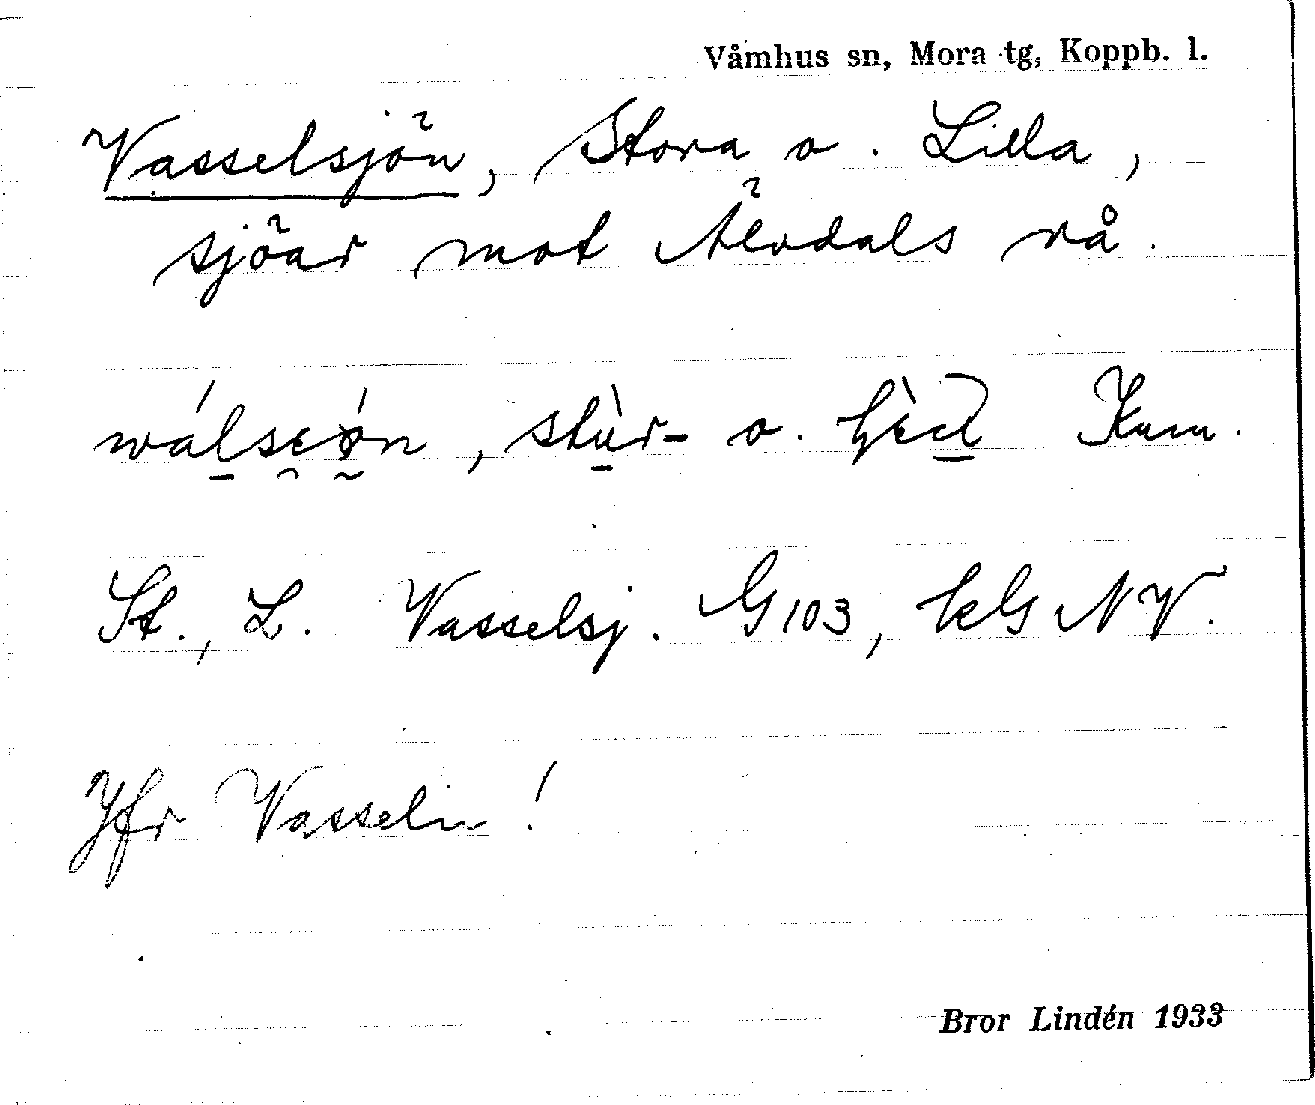 Våmhus sn, Mora tg, Koppb. l.
Vasselsjön, Stora o. Lilla,
sjöar mot Älvdals rå.
stùr- o.
St., L. Vasselsj. G103, kG NV.
Jfr Vasseln!
Bror Lindén 1933